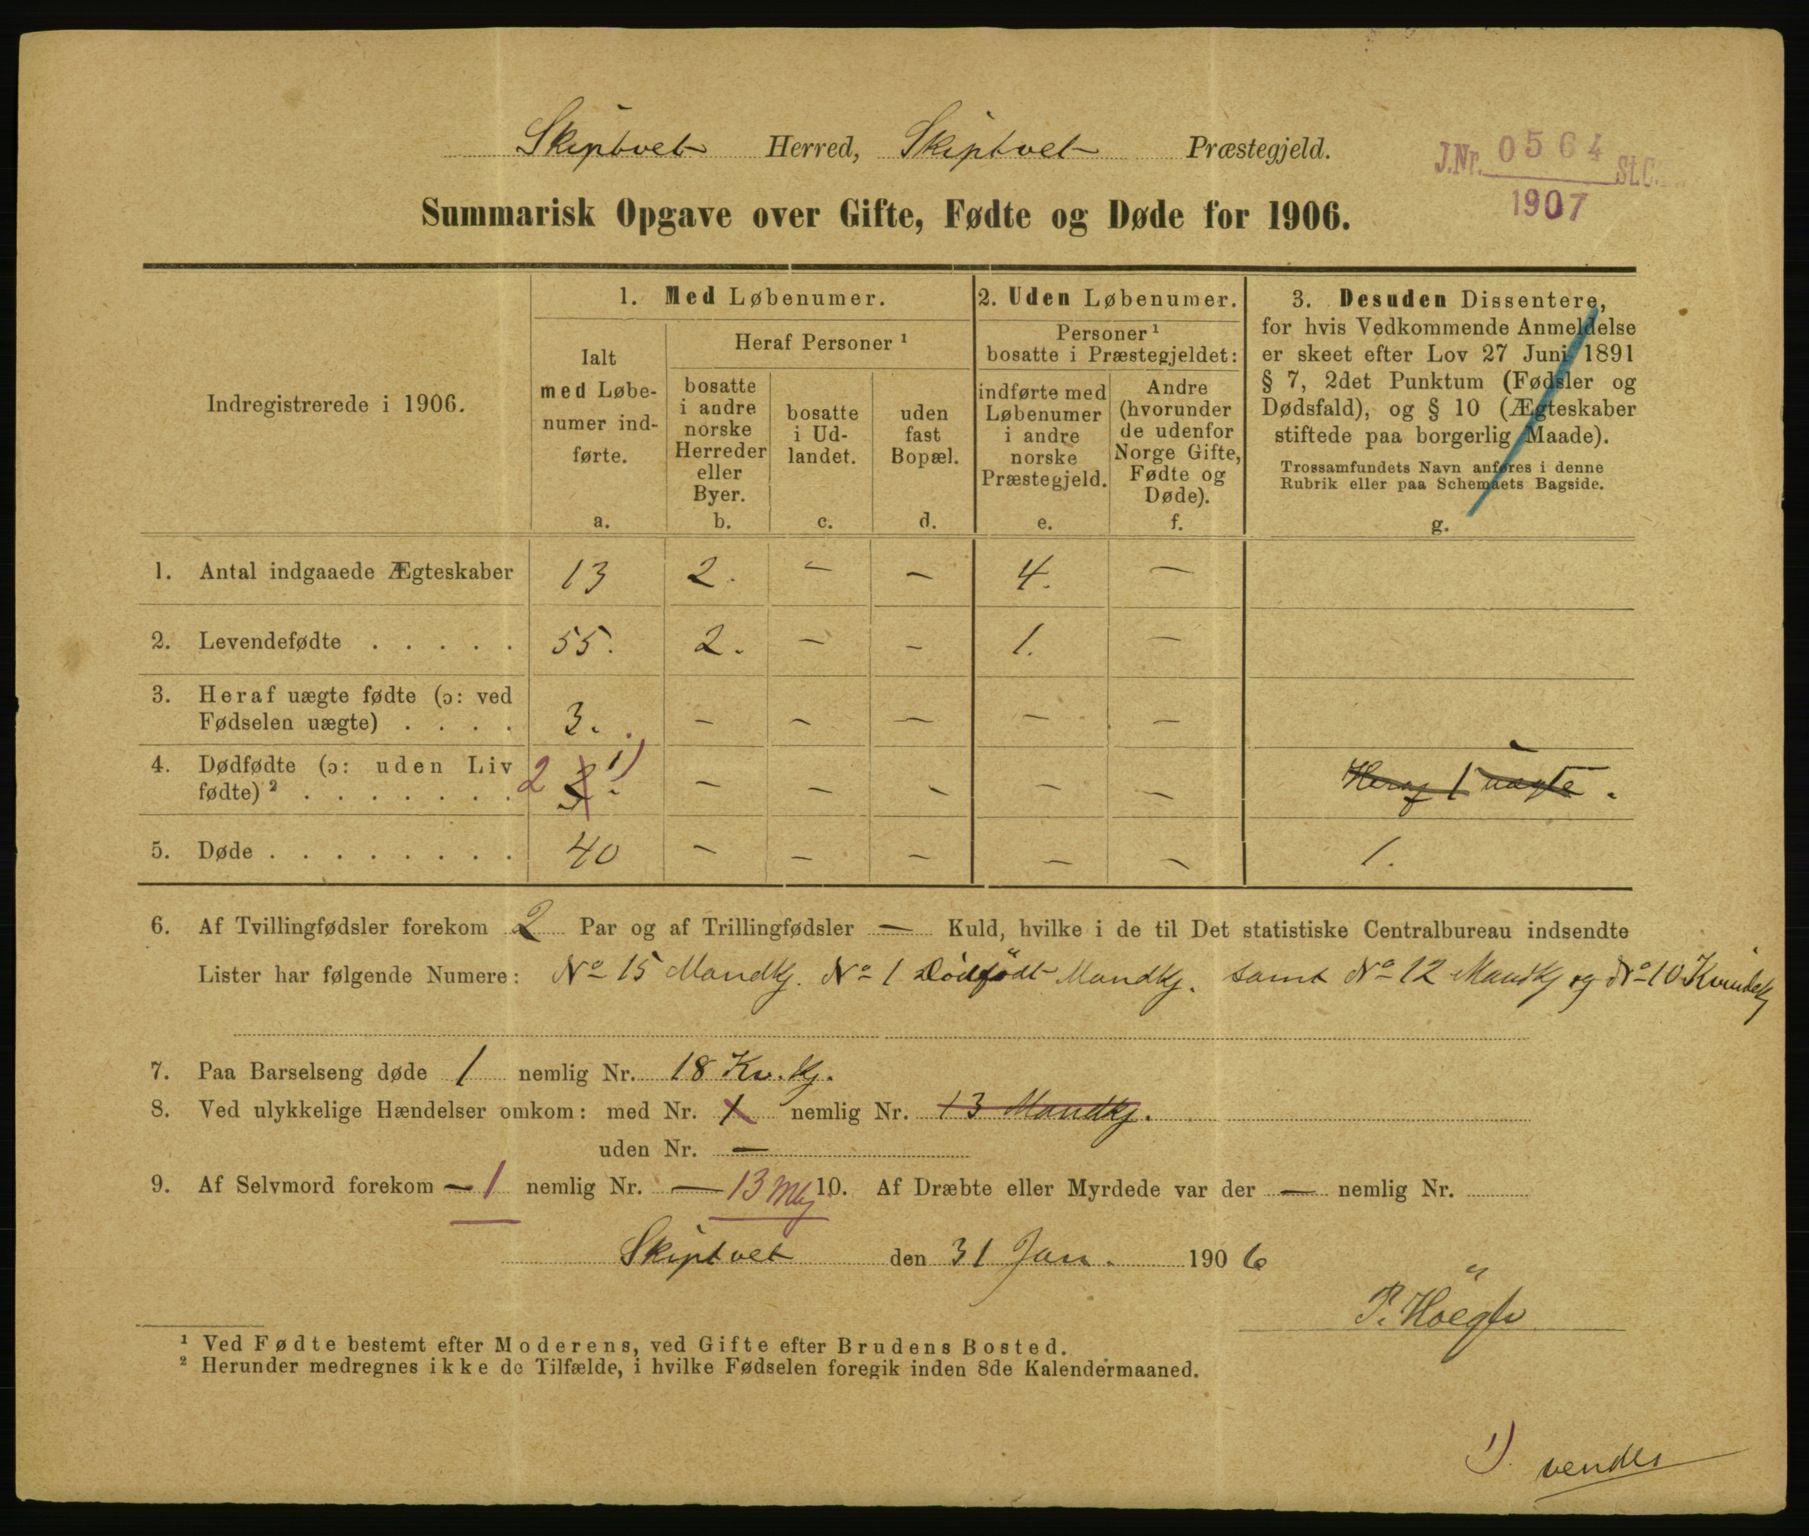 Skiptvet Herred, Skiptvet Præstegjeld.
J.Nr. 0564 St.C.
1907
Summarisk Opgave over Gifte, Fødte og Døde for 1906.
Indregistrerede i 1906.
1. Med Løbenumer.
Ialt
med Løbe-
numer ind-
førte.
a.
Heraf Personer ¹
bosatte
i andre
norske
Herreder
eller
Byer.
b.
bosatte
i Ud-
landet.
c.
uden
fast
Bopæl.
d.
2. Uden Løbenumer.
Personer ¹
bosatte i Præstegjeldet:
indførte med
Løbenumer
i andre
norske
Præstegjeld.
e.
Andre
(hvorunder
de udenfor
Norge Gifte,
Fødte og
Døde).
f.
3. Desuden Dissentere,
for hvis Vedkommende Anmeldelse
er skeet efter Lov 27 Juni 1891
§ 7, 2det Punktum (Fødsler og
Dødsfald), og § 10 (Ægteskaber
stiftede paa borgerlig Maade).
Trossamfundets Navn anføres i denne
Rubrik eller paa Schemaets Bagside.
g.
1. Antal indgaaede Ægteskaber 13 2. — — 4. —
2. Levendefødte . . . . . 55. 2. — — 1. —
3. Heraf uægte fødte (ɔ: ved
Fødselen uægte) . . . . 3. — — — — —
4. Dødfødte (ɔ: uden Liv
fødte) ² . . . . . . . 2 3. 1) — — — — — Heraf 1 uægte.
5. Døde . . . . . . . . 40 — — — — — 1.
6. Af Tvillingfødsler forekom 2 Par og af Trillingfødsler — Kuld, hvilke i de til Det statistiske Centralbureau indsendte
Lister har følgende Numere: No 15 Mandkj. No 1 Dödfödt Mandkj. samt No 12 Mandkj og No 10 Kvindekj
7. Paa Barselseng døde 1 nemlig Nr. 18 Kv. kj.
8. Ved ulykkelige Hændelser omkom: med Nr. 1 nemlig Nr. 13 Mandkj.
uden Nr. —
9. Af Selvmord forekom — 1 nemlig Nr. — 13 Mkj 10. Af Dræbte eller Myrdede var der — nemlig Nr.
Skiptvet den 31 Jan. 1906
P. Höegh
¹ Ved Fødte bestemt efter Moderens, ved Gifte efter Brudens Bosted.
² Herunder medregnes ikke de Tilfælde, i hvilke Fødselen foregik inden 8de Kalendermaaned.
1) vendes